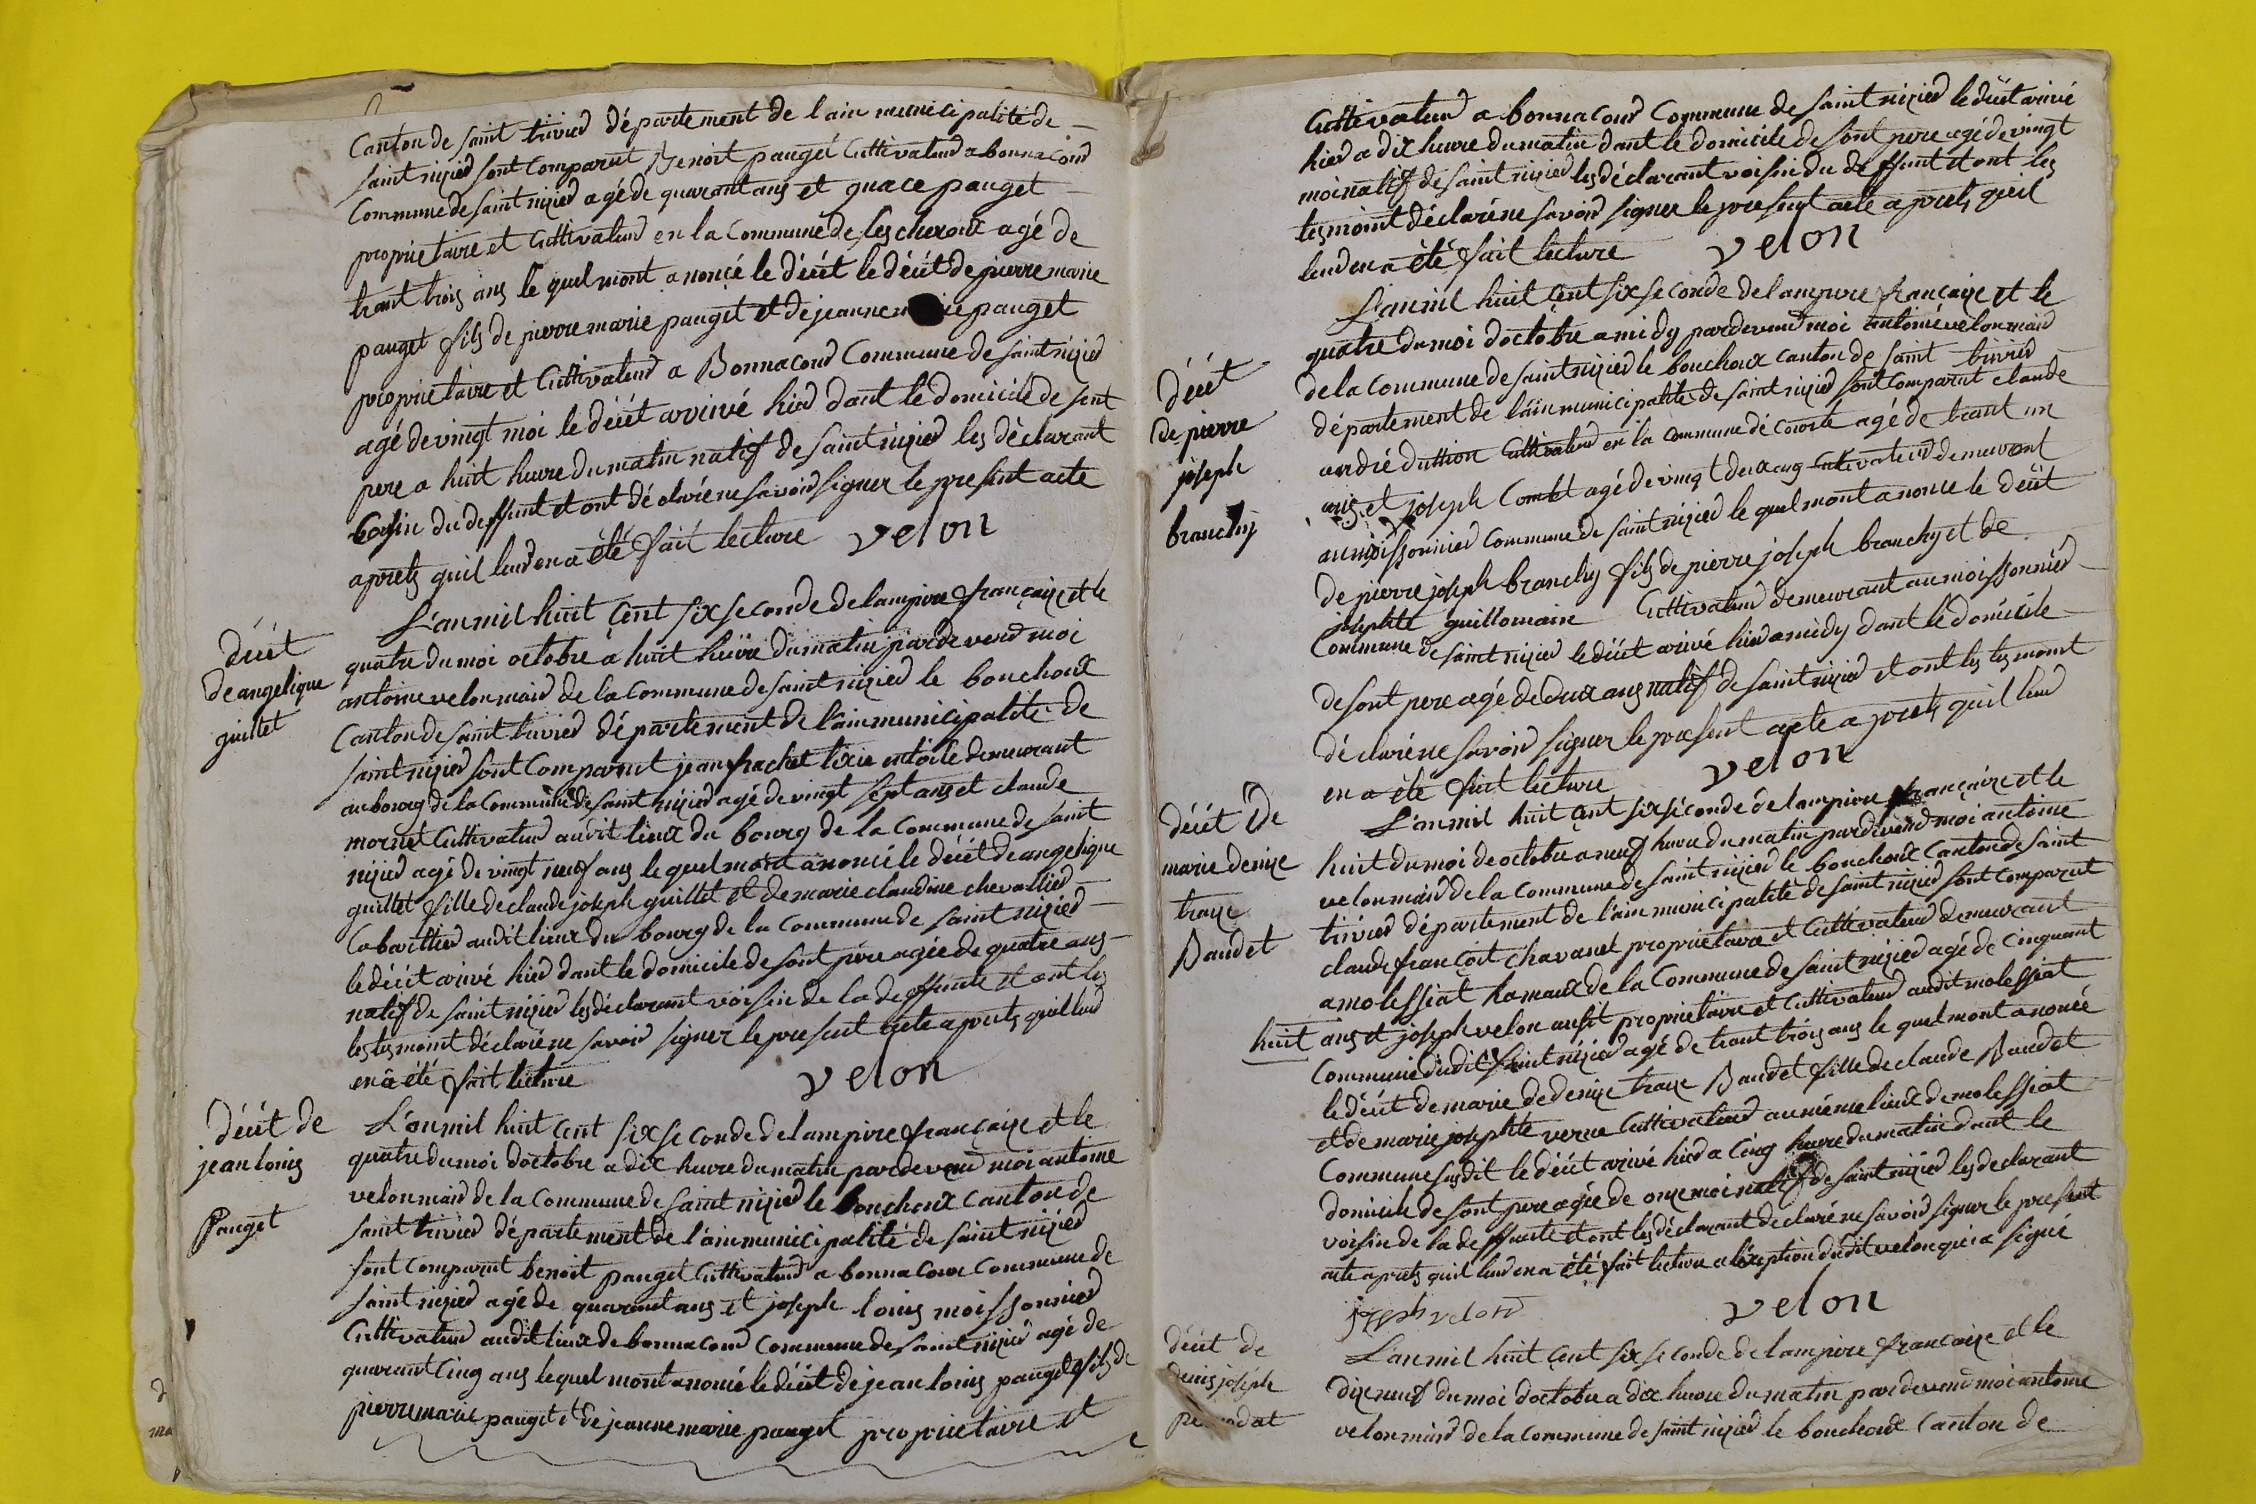 Canton de saint trivier département de lain municipalité de
saint nizier sont Comparut Benoit pauget Cultivateur a bonnacour
Commune de saint nizier agé de quarant ans et grace pauget
proprietaire et Cultivateur en la Commune de lescheroux agé de
trant trois ans le quel mont anoncé le décét le décét de pierre marie
pauget fils de pierre marie pauget et de jeanne pauget
proprietaire et Cultivateur a Bonnacour Commune de saint nizier
agé de vingt moi le décét arrivé hier dant le domicile de sont
pere a huit heure du matin natif de saint nizier les déclarant
Cosin du deffunt et ont déclaré ne savoir signer le present acte
aprets quil leur en a été fait lecture velon
décét
de angelique
guillet
L'an mil huit cent six seconde de lampire françaize et le
quatre du moi octobre a huit heure du matin pardevend moi
antoine velon maire de la Commune de saint nizier le bouchoux
Canton de saint trivier département de l'ain municipalité de
saint nizier sont Comparut jean frachet tixie entoile demeurant
au bourg de la Commune de saint nizier agé de vingt sept ans et claude
mornet Cultivateur audit lieux du bourg de la Commune de saint
nizier agé de vingt neuf ans le quel mont anoncé le décét de angelique
guillet fille de claude joseph guillet et de marie claudine chevallier
Cabarittier audit lieux du bourg de la Commune de saint nizier
le décét arivé hier dant le domicile de sont père agée de quatre ans
natif de saint nizier les déclarant voisin de la deffunte et ont les
les tesmoint déclaré ne savoir signer le present acte aprets quil leur
en a été fait lecture velon
décét de
jean louis
pauget
L'an mil huit cent six seconde de lampire françaize et le
quatre du moi doctobre a dix heure du matin pardevend moi antoine
velon maire de la Commune de saint nizier le bouchoux canton de
saint trivier département de l'ain municipalité de saint nizier
sont Comparut benoit pauget Cultivateur a bonnacour Commune de
saint nizier agé de quarant ans et joseph louis moissonnier
Cultivateur audit lieux de bonnacour Commune de saint nizier agé de
quarant Cinq ans le quel mont anoncé le décét de jean louis pauget fils de
pierre marie pauget et de jeanne marie pauget proprietaire et
Cultivateur a bonnacour Commune de saint nizier le décét arivé
hier a dix heure du matin dant le domicile de sont pere agé de vingt
moi natif de saint nizier les déclarant voisin du deffunt et ont les
tesmoint déclaré ne savoir signer le present acte aprets quil
leur en a été fait lecture velon
décét
de pierre
joseph
branchy
L'an mil huit cent six seconde de lampire françaize et le
quatre du moi doctobre a midy pardevend moi antoine velon maire
de la Commune de saint nizier le bouchoux canton de saint trivier
département de l'ain municipalité de saint nizier sont Comparut claude
andré duttion Cultivateur en la commune de agé de trant un
ans et joseph Combet agé de vingt deux ans Cultivateur demeurant
au moissonnier Commune de saint nizier le quel mont anoncé le décét
de pierre joseph branchy fils de pierre joseph branchy et de
josephte guillomaire Cultivateur demeurant au moissonnier
Commune de saint nizier le décét arivé hier a midy dant le domicile
de sont pere agé de deux ans natif de saint nizier et ont les tesmoint
déclaré ne savoir signer le present acte aprets quil leur
en a été fait lecture velon
décét de
marie denize
traze
Baudet
L'an mil huit cent six seconde de lampire françaize et le
huit du moi de octobre a neuf heure du matin pardevend moi antoine
velon maire de la Commune de saint nizier le bouchoux Canton de saint
trivier département de l'ain municipalité de saint nizier sont Comparut
claude françoit chavanet proprietaire et Cultivateur demeurant
a molessiat hamaux de la Commune de saint nizier agé de Cinquant
huit ans et joseph velon ausit proprietaire et Cultivateur audit molessiat
Commune dudit saint nizier agé de trant trois ans le quel mont anoncé
le décét de marie de denize traze Baudet fille de claude Baudet
et de marie josephte verne Cultivateur au même lieux de molessiat
Commune susdit le décét arivé hier a Cinq heure du matin dant le
domicile de sont pere agée de onze moi natif de saint nizier les declarant
voisin de la deffunte et ont les déclarant declaré ne savoir signer le present
acte aprets quil leur en a été fait lecture a lexeption dudit velon qui a signé
joseph velon velon
décét de
denis joseph
L'an mil huit cent six seconde de lampire françaize et le
dix neuf du moi doctobre a dix heure du matin pardevend moi antoine
velon maire de la Commune de saint nizier le bouchoux Canton de